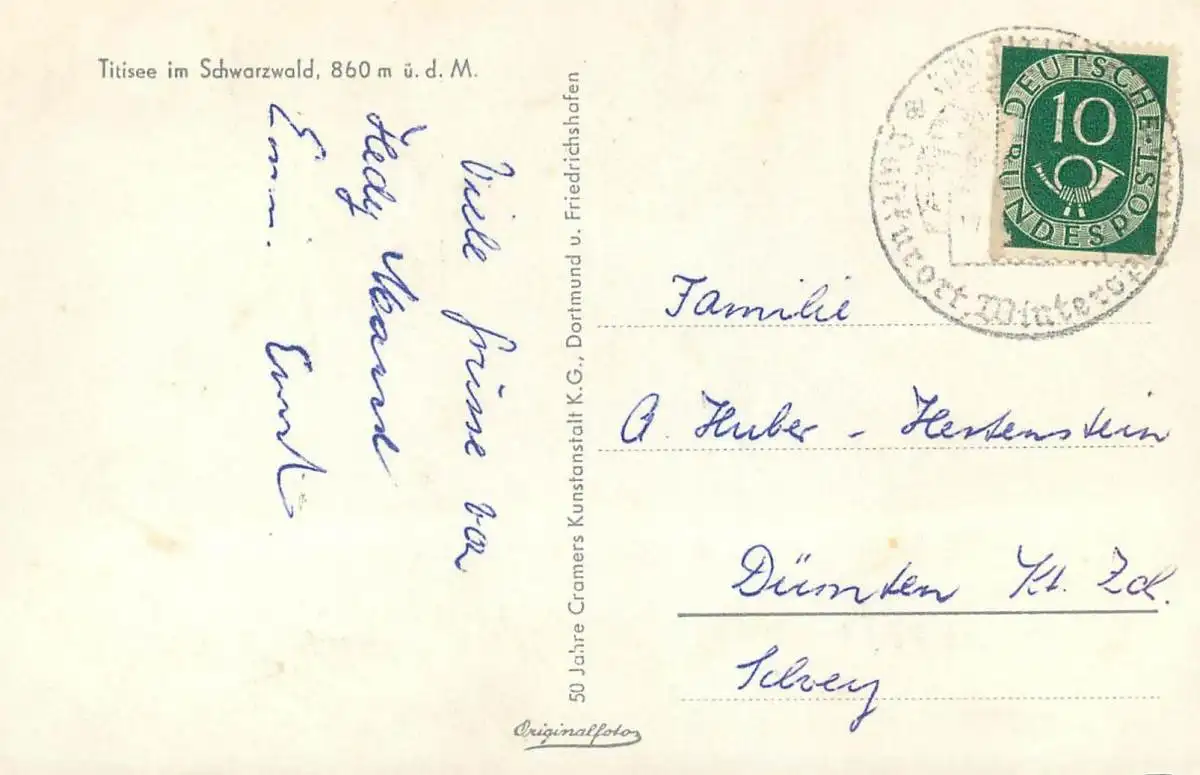 Titisee im Schwarzwald, 860 m ü. d. M.
Viele Grüsse von
Hedy
Emmi. Ernst
50 Jahre Cramers Kunstanstalt K.G., Dortmund u. Friedrichshafen
DEUTSCHE BUNDESPOST
10
Luftkurort Wintersp
Familie
A. Huber - Hertenstein
Dürnten Kt. Zch.
Schweiz
Originalfoto